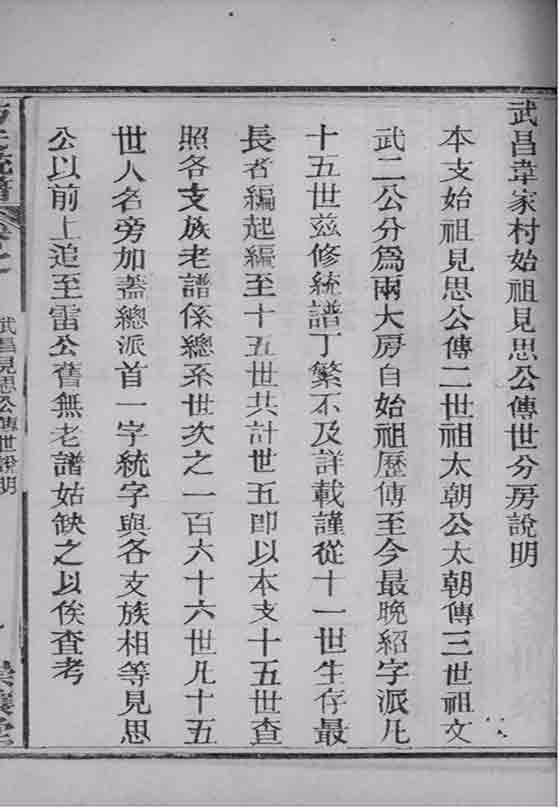 武昌韋家村始祖見思公傳世分房說明
本支始祖見思公傳二世祖太朝公太朝傳三世祖文
武二公分爲兩大房自始祖歷傳至今最晩紹字派凡
十五世茲修統譜丁繁不及詳載謹從十一世生存最
長者編起編至十五世共計世五卽以本支十五世查
照各支族老譜係總系世次之一百六十六世凡十五
世人名旁加蓋總派首一字統字與各支族相等見思
公以前上追至雷公舊無老譜姑缺之以俟查考
武昌見思公傳世說明